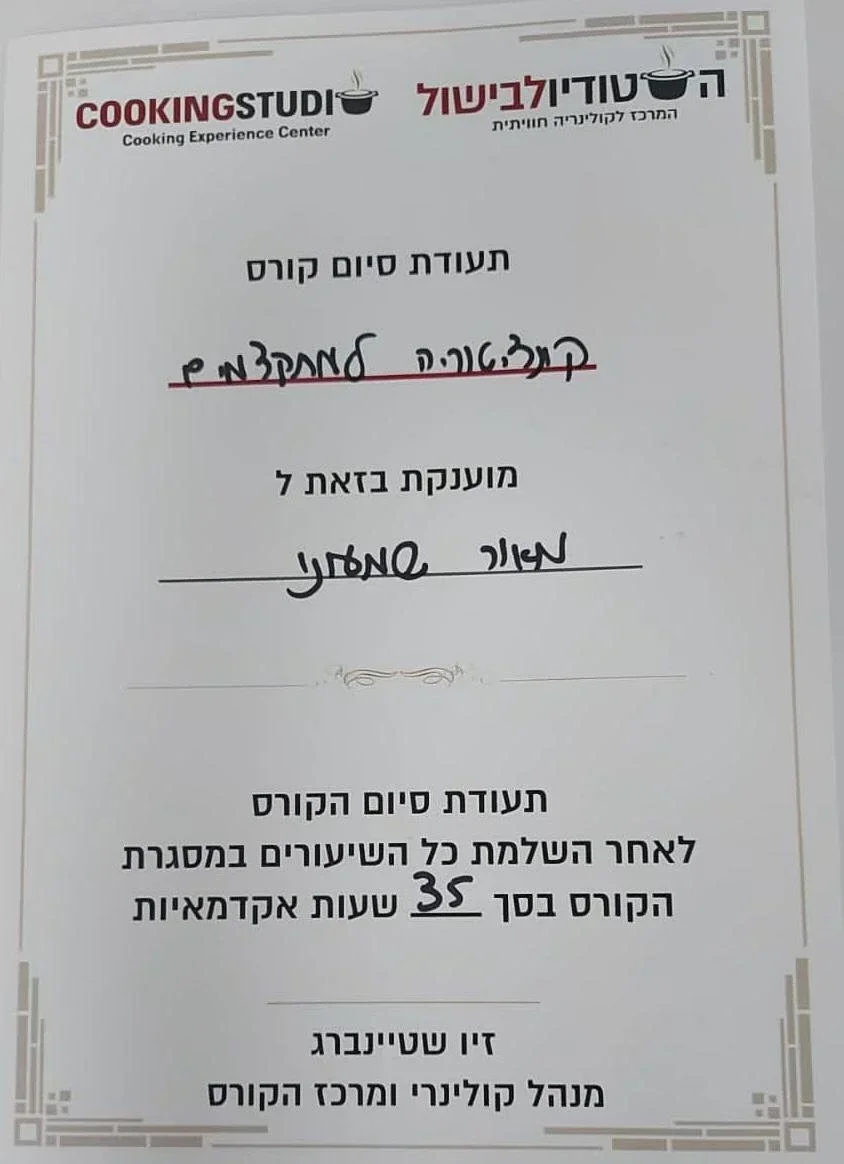 COOKINGSTUDIO
Cooking Experience Center
הסטודיולבישול
המרכז לקולינריה חוויתית
תעודת סיום קורס
קונדיטוריה למתקדמים
מוענקת בזאת ל
מאור שמעוני
תעודת סיום הקורס
לאחר השלמת כל השיעורים במסגרת
הקורס בסך 35 שעות אקדמאיות
זיו שטיינברג
מנהל קולינרי ומרכז הקורס